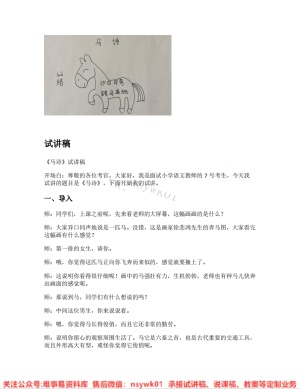 马 诗
李贺
试讲稿
《马诗》试讲稿
开场白：尊敬的各位考官，大家好，我是面试小学语文教师的 7 号考生，今天我
试讲的题目是《马诗》。下面开始我的试讲。
一、导入
师：同学们，上课之前呢，先来看老师的大屏幕，这幅画画的是什么？
师：大家异口同声地说是一匹马。没错，这是画家徐悲鸿先生的奔马图，大家看完
这幅画有什么感觉？
师：第一排的女生，请你。
师：哦，你觉得这匹马正向你飞奔而来似的，感觉就要撞上了。
师：这说明你看得很仔细呢！画中的马强壮有力，生机勃勃，老师也有种马儿快奔
出画面的感觉呢。
师：那说到马，同学们有什么想说的吗？
师：中间这位男生，你来说说。
师：嗯，你觉得马长得俊俏，而且它还非常的勤劳。
师：说明你留心的观察周围生活了。马它是六畜之首，也是古代重要的交通工具，
而且外形高大有型，难怪你觉得它俊俏呢。
关注公众号:难事易资料库 售后微信：nsywk01 承接试讲稿、说课稿、教案等定制业务